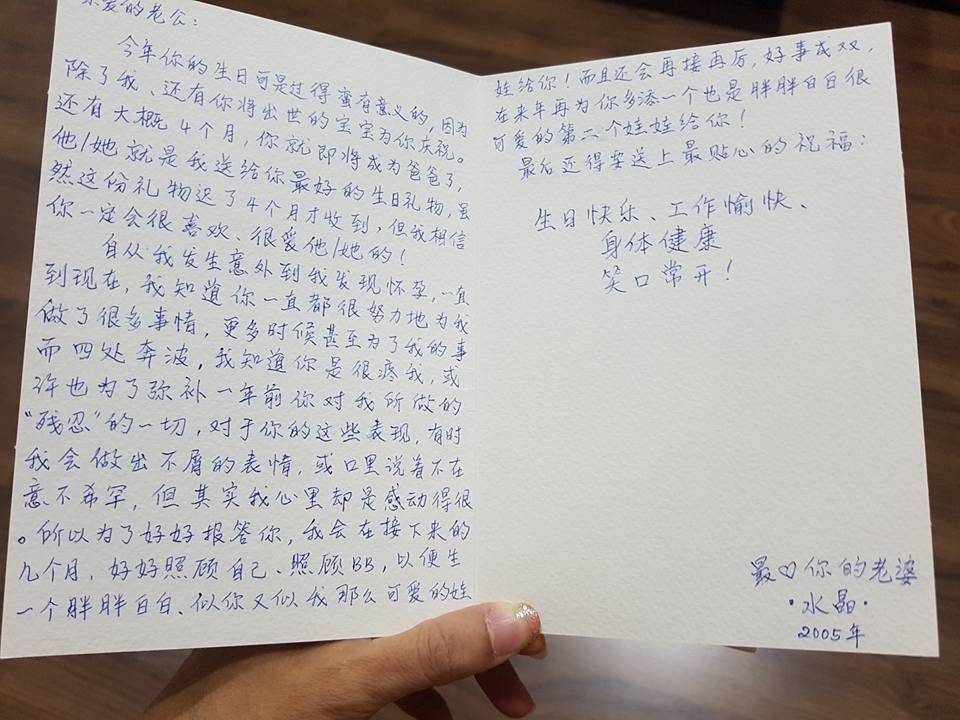 亲爱的老公：
今年你的生日可是过得蛮有意义的，因为
除了我、还有你将出世的宝宝为你庆祝。
还有大概4个月，你就即将成为爸爸了，
他/她就是我送给你最好的生日礼物，虽
然这份礼物迟了4个月才收到，但我相信
你一定会很喜欢、很爱他/她的！
自从我发生意外到我发现怀孕，一直
到现在，我知道你一直都很努力地为我
做了很多事情，更多时候甚至为了我的事
而四处奔波，我知道你是很疼我，或
许也为了弥补一年前你对我所做的
“残忍”的一切，对于你的这些表现，有时
我会做出不屑的表情，或口里说着不在
意不希罕，但其实我心里却是感动得很
。所以为了好好报答你，我会在接下来的
几个月，好好照顾自己、照顾BB，以便生
一个胖胖白白、似你又似我那么可爱的娃
娃给你！而且还会再接再厉，好事成双，
在来年再为你多添一个也是胖胖白白很
可爱的第二个娃娃给你！
最后还得要送上最贴心的祝福：
生日快乐、工作愉快、
身体健康
笑口常开！
最♡你的老婆
·水晶·
2005年